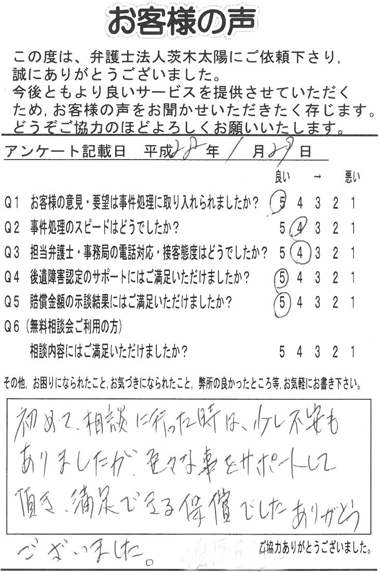 お客様の声
この度は、弁護士法人茨木太陽にご依頼下さり、
誠にありがとうございました。
今後ともより良いサービスを提供させていただく
ため、お客様の声をお聞かせいただきたく存じます。
どうぞご協力のほどよろしくお願いいたします。
アンケート記載日 平成28年1月29日
良い → 悪い
Q1 お客様の意見・要望は事件処理に取り入れられましたか? 5 4 3 2 1
Q2 事件処理のスピードはどうでしたか? 5 4 3 2 1
Q3 担当弁護士・事務局の電話対応・接客態度はどうでしたか? 5 4 3 2 1
Q4 後遺障害認定のサポートにはご満足いただけましたか? 5 4 3 2 1
Q5 賠償金額の示談結果にはご満足いただけましたか? 5 4 3 2 1
Q6 (無料相談会ご利用の方)
相談内容にはご満足いただけましたか? 5 4 3 2 1
その他、お困りになられたこと、お気づきになられたこと、弊所の良かったところ等、お気軽にお書き下さい。
初めて、相談に行った時は、少し不安も
ありましたが、色々な事をサポートして
頂き、満足できる保償でしたありがとう
ございました。
ご協力ありがとうございました。